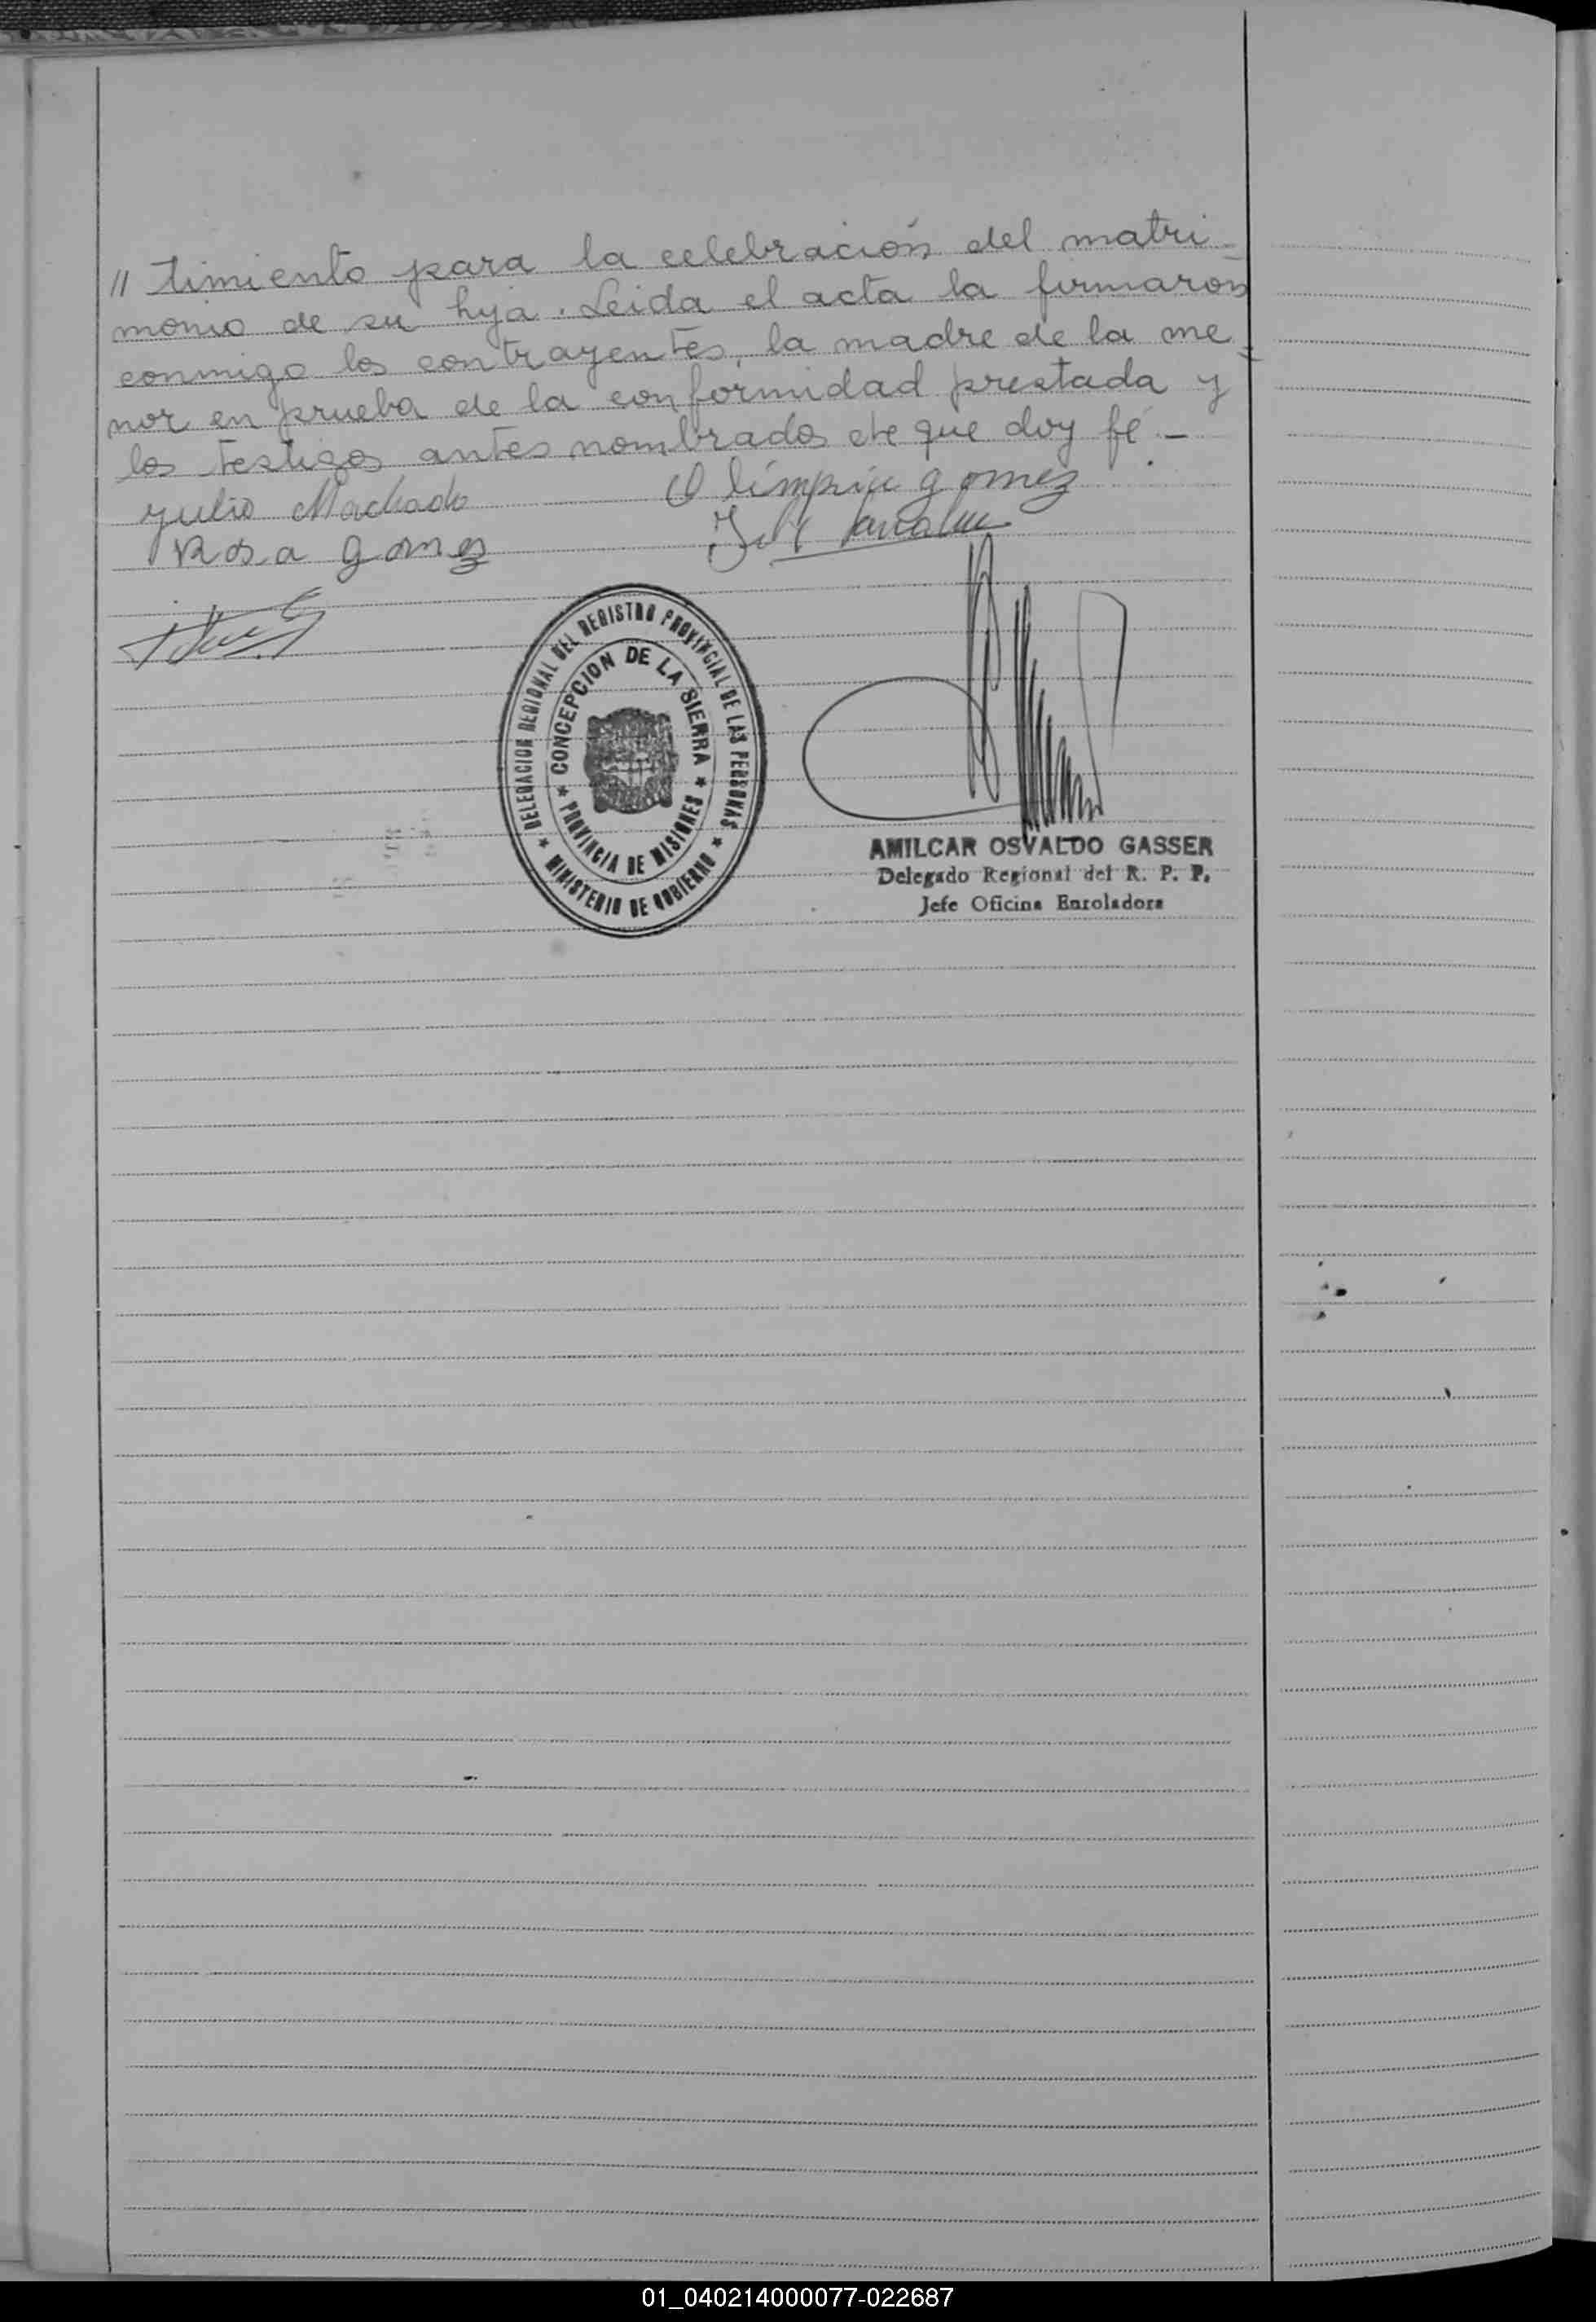 // timiento para la celebración del matri_
monio de su hija. Leida el acta la firmaron
conmigo los contrayentes, la madre de la me_
nor en prueba de la conformidad prestada y
los testigos antes nombrados de que doy fé._
Julio Machado
Olimpia gomez
Rosa gomez
DELEGACION REGIONAL DEL REGISTRO PROVINCIAL DE LAS PERSONAS
* MINISTERIO DE GOBIERNO *
CONCEPCION DE LA SIERRA
* PROVINCIA DE MISIONES *
AMILCAR OSVALDO GASSER
Delegado Regional del R. P. P.
Jefe Oficina Enroladora
01_040214000077-022687